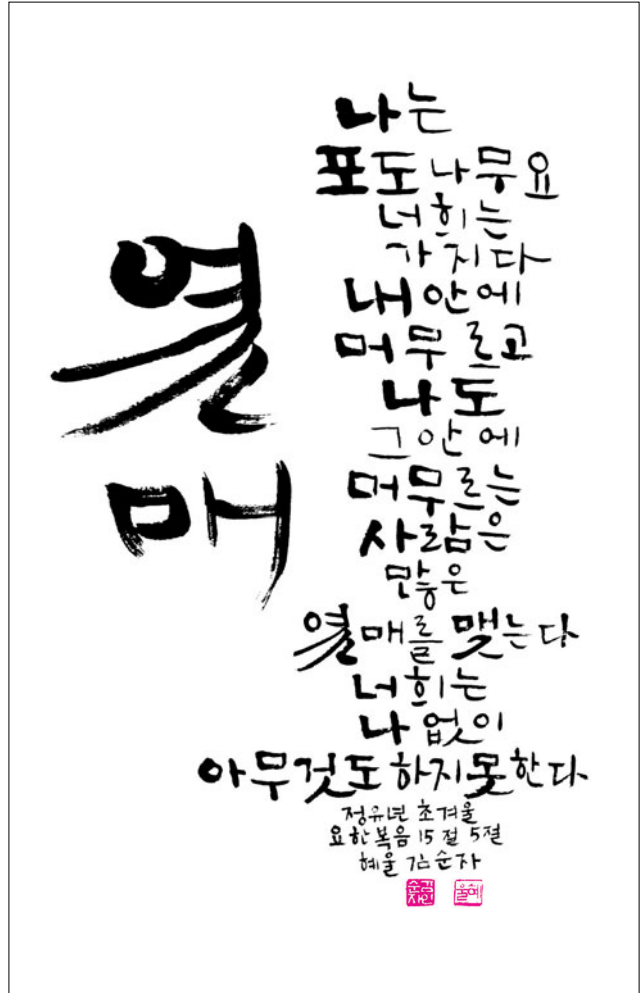 열
매
나는
포도나무요
너희는
가지다
내 안에
머무르고
나도
그 안에
머무르는
사람은
많은
열매를 맺는다
너희는
나 없이
아무것도 하지 못한다
정유년 초겨울
요한복음 15절 5절
혜윰 김순자